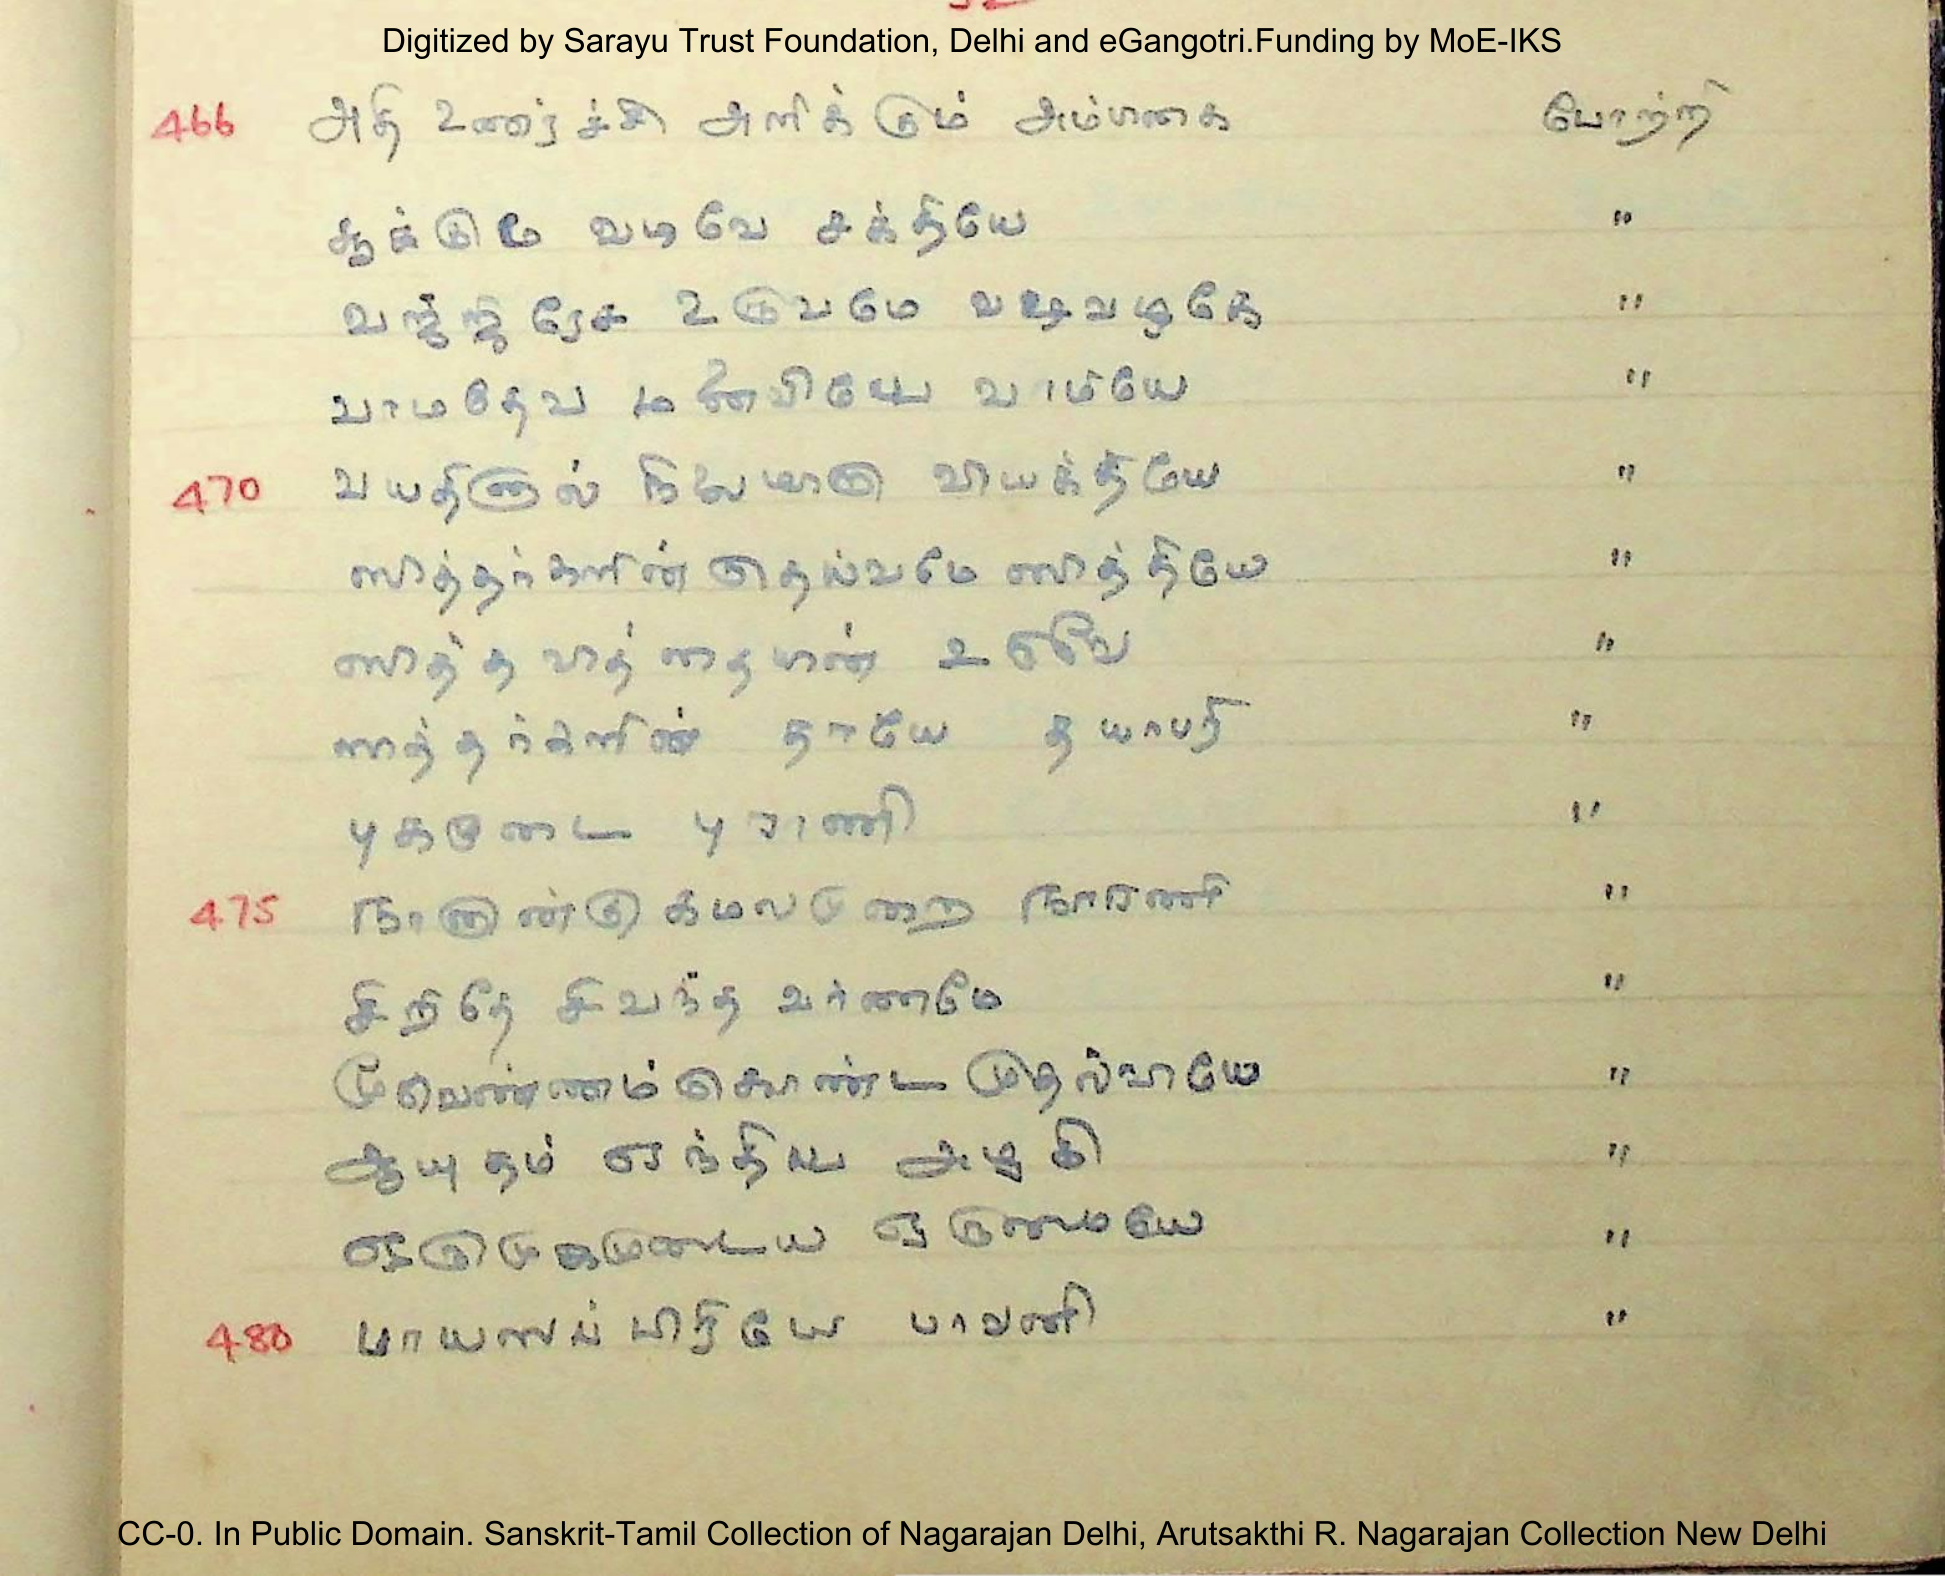 Digitized by Sarayu Trust Foundation, Delhi and eGangotri.Funding by MoE-IKS
466 அதி உணர்ச்சி அளிக்கும் அம்பிகை போற்றி
வடிவே சக்தியே "
வஜ்ஜிரேச உருவமே வஜ்ரவழகே "
வாமதேவ மனைவியே வாமியே "
470 வயதினுல் நிலை மாறா வியக்தியே "
ஸித்தர்களின் தெய்வமே ஸித்தியே "
ஸித்த வித்தையின் உருவே "
ஸித்தர்களின் தாயே தயாபரி "
புகழுடை புராணி "
475 நானுன்கு கமலமுறை நாரணி "
சிறிதே சிவந்த வர்ணமே "
மூவெண்ணம் கொண்ட முதல்வியே "
ஆயுதம் ஏந்திய அழகி "
ஒருமுகமுடைய ஒருமையே "
480 பாயஸப்பிரியே பாவனி "
CC-0. In Public Domain. Sanskrit-Tamil Collection of Nagarajan Delhi, Arutsakthi R. Nagarajan Collection New Delhi